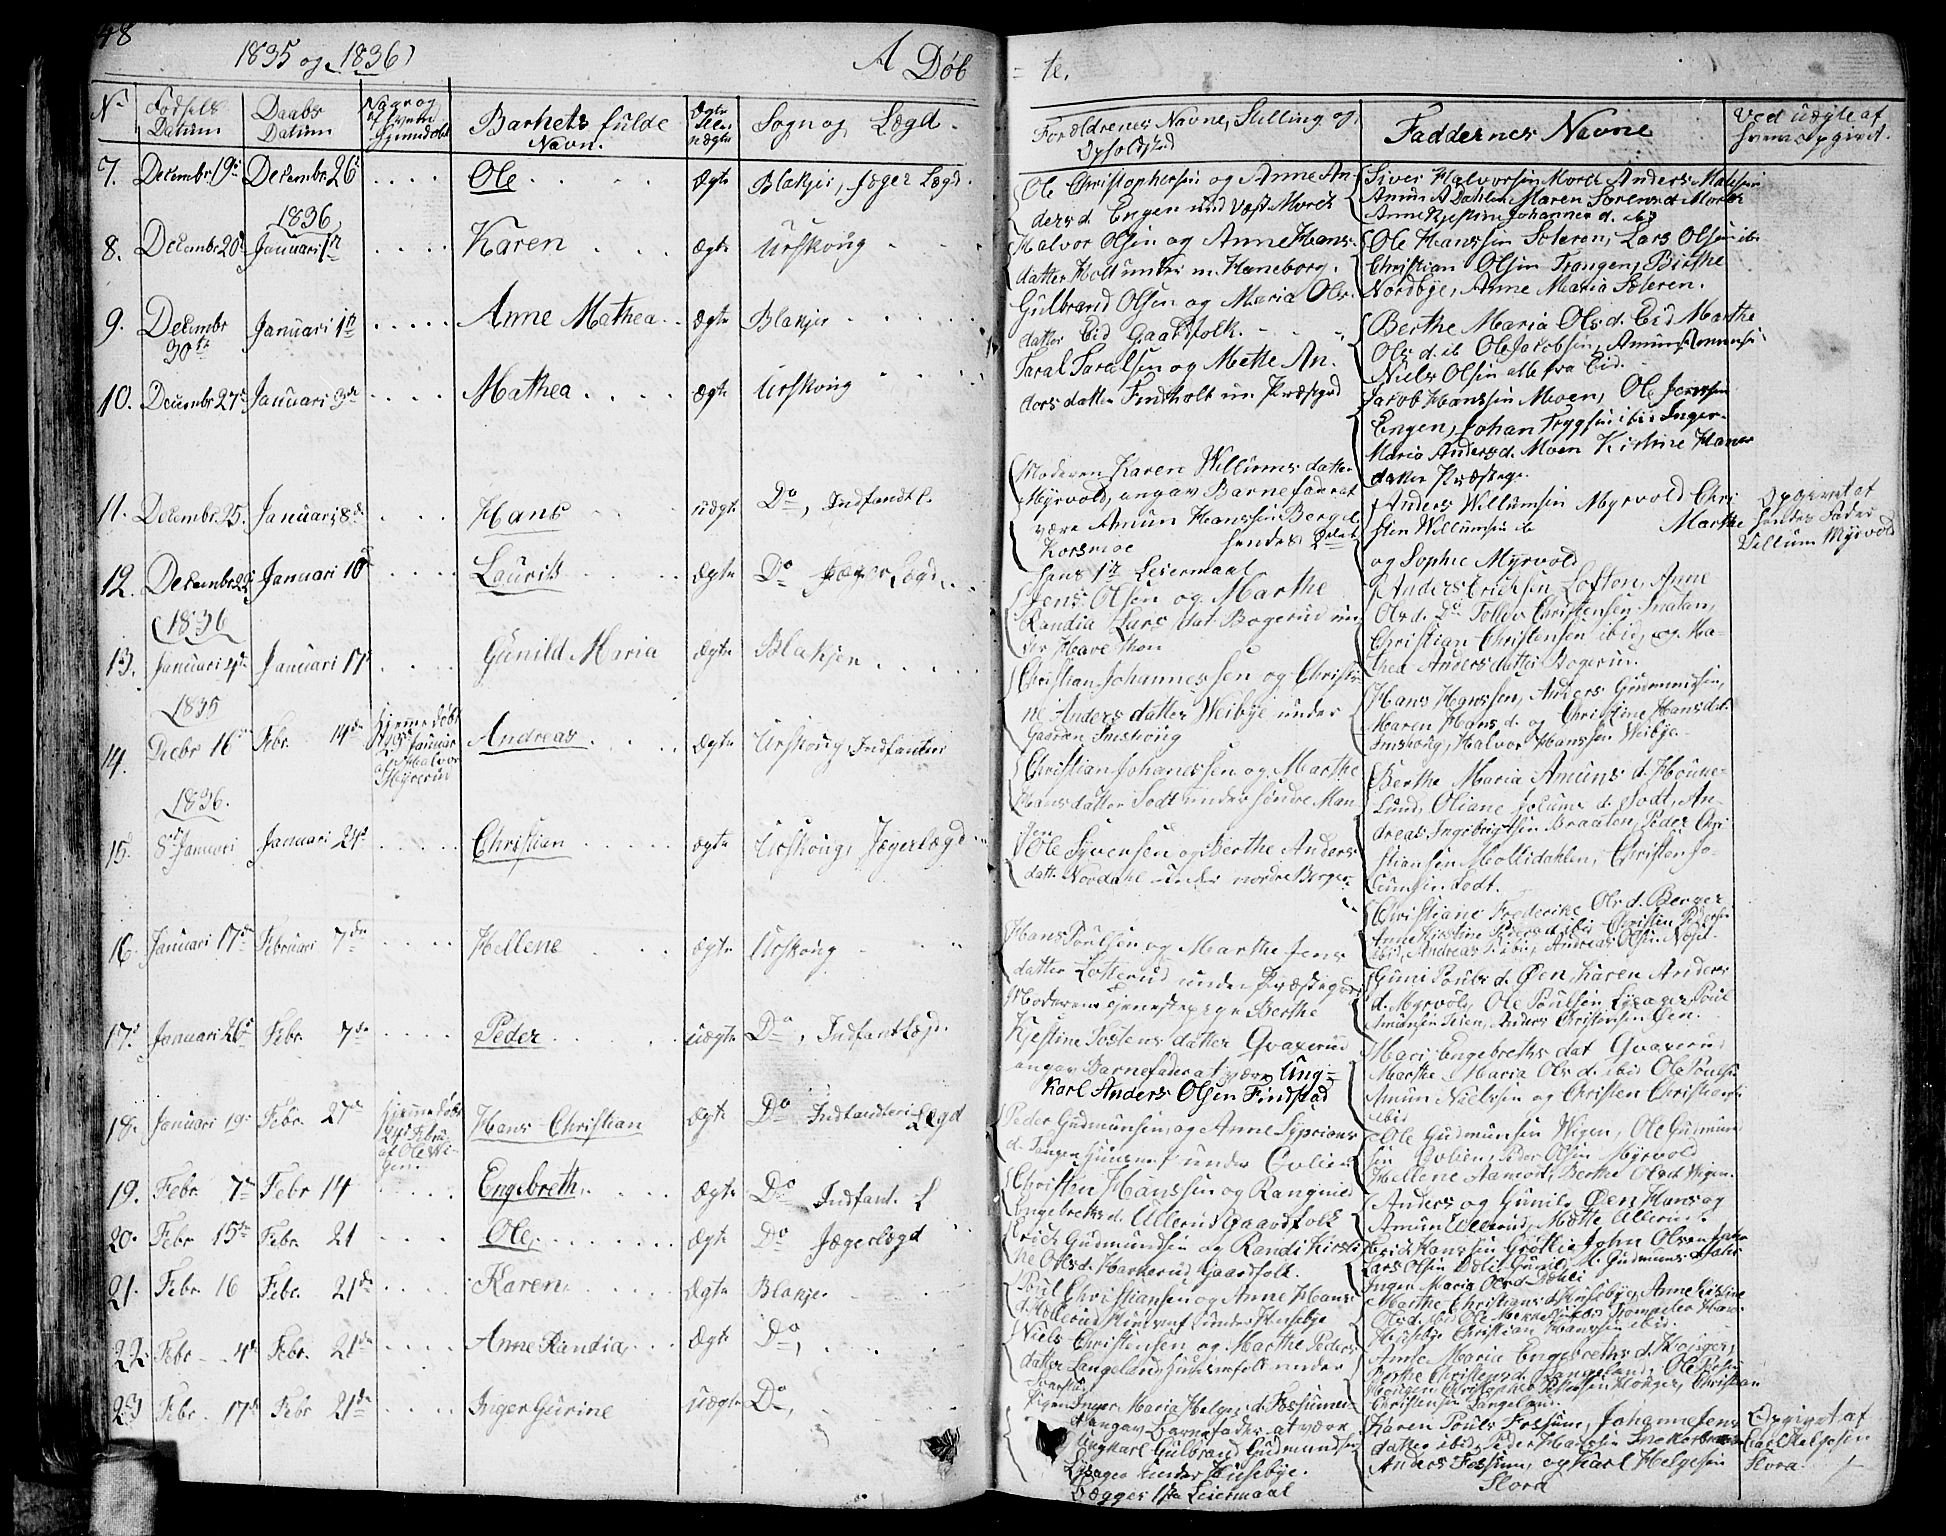 48
1835 og 1836
A Døb
= te.
No
Fødsels Datum
Daabs Datum
Naar og af hvem hjemmedøbt
Barnets fulde Navn.
Ægte eller uægte
Sogn og Lægd.
Forældrenes Navne, Stilling og Opholdsted
Faddernes Navne
Ved uægte af hvem opgivet.
7. Decembr. 19de Decembr. 26 .... Ole .... Ægte Blakjer, Jæger Lægd.
Ole Christophersen og Anne An-
dersd. Engen und Vest Morck
Siver Halvorsen Morck Anders Madsen
Amun A Dahlen Maren Sørensd. Morck
Anne Kjestine Johannesd. ib.
1836
8. Decembr. 20de Januari 1ste .... Karen .... Ægte Urskoug
Halvor Olsen og Anne Hans-
datter Holt under n. Haneborg.
Ole Hanssen Soleren, Lars Olsen ib.
Christian Olsen Trangen, Birthe
Nordbye, Anne Maria Soleren.
9. Decembr 30te Januari 1ste .... Anne Mathea .. Ægte Blakjer
Gulbrand Olsen og Maria Ols-
datter Eid Gaardfolk.
Berthe Maria Olsd. Eid Marthe
Olsd. ib Ole Jacobsen, Amun Amunsen
Niels Olsen alle fra Eid.
10. Decembr. 27de Januari 3de .... Mathea .... Ægte Urskoug
Taral Taralsen og Mette An-
dersdatter Findholt un. Præstegrd
Jacob Hanssen Moen, Ole Jenssen
Engen, Johan Tryggsen ibid Inger
Maria Andersd. Moen Kirstine Hans
datter Præsteg.
11. Decembr. 25. Januari 8de .. Hans uægte Do, Indfandt l.
Moderen Karen Willums datter
Myrvold, angav Barnefader at
være Amun Hanssen Berger
Korsmoe hendes
hans 1ste Leiermaal
Anders Willumsen Myrvold Chri-
sten Willumsen ib Marthe
og Sophie Myrvold
Opgivet af
hendes Fader
Villum Myrvold
12. Decembr. 22 Januari 10de .... Laurits .... Ægte Do Jæger Lægd.
Jens Olsen og Marthe
Randia Lars dat. Bogerud un-
der Heare Thon
Anders Erichsen Loften, Anne
Olsd. Do Tollev Christensen Snatan,
Christian Christensen ibid, og Ma-
thea Andersdatter Bogerud.
1836
13. Januari 4de Januari 17de .... Gunild Maria Ægte Blakjer ....
Christian Johannessen og Christi-
ne Anders datter Weibye under
Gaarden Imskoug
Hans Hanssen, Anders Gudmundsen,
Maren Hansd. og Christine Hansdat.
Imskoug, Halvor Hanssen Weibye.
1835
14. Decbr 16de Febr. 14de Hjemmedøbt Januar af Halvor Myrerud Andreas .... Ægte Urskoug, Indfanteri
Christian Johanessen og Marthe
Hans datter Todt under søndre Man-
gen
Berthe Maria Amunsd. Houne-
lund, Oliane d. Todt, An-
dreas Ingebrigtsen Braaten, Peder Chri-
stiansen Mollidahlen, Christen Jo-
Todt.
1836.
15. 8de Januari Januari 24de .... Christian .... Ægte Urskoug, Jægerlægd
Ole Syversen og Berthe Anders
datt. Nordahl under nordre Berger
Christiane Frederike Olsd. Berger
Anne Kirstine Pedersd. ibid Christen Pedersen
ibid, Andreas P. ibid, Andreas Olsen
16. Januari 17de Februari 7de .... Hellene .... Ægte Urskoug
Hans Poulsen og Marthe Jens
datter Lofterud under Præstegrd.
Guni Poulsd. Øen, Karen Anders
d. Myrvold, Ole Poulsen Lysager Poul
Amunsen Teien, Anders Christensen Øen.
17. Januari 26de Febr. 7de .... Peder .... uægte Do, Indfant Lægd.
Moderen Tjenestepige Berthe
Kjestine Tostens datter Gvaxerud
angav Barnefader at være Ung-
Karl Anders Olsen Findstad
Mari Engebreths dat Gvaxerud
Marthe Maria Olsd. ibid Ole Poulsen
Amun Nielssen og Christen Christians.
ibid
18. Januari 19de Febr. 27de Hjemmedøbt Febru. af Ole Wigen. Hans Christian Ægte Do Indfandteri Lægd
Peder Gudmunsen, og Anne Syprians
d. Tangen Huusmf under Gvlien
Ole Gudmunsen Wigen, Ole Gudmun
sen Gvlien, Peder Olsen Myrvold
Hellene Aamodt, Berthe Olsd. Wigen.
19. Febr. 7de Febr 14 .... Engebreth .... Ægte Do Indfant. L
Christen Hanssen og Rangnild
Engebrethsd. Ullerud Gaardfolk
Anders og Gunild Øen Hans og
Amun Ullerud, Mætte Ullerud.
20. Febr. 15de Febr. 21 .... Ole .... Ægte Do Jægerlægd
Erich Gudmundsen og Randi Kirsti-
ne Olsd. Harkerud Gaardfolk.
Erich Hanssen Grøttlie John Olsen
Lars Olsen Gunild M. Gudmunsd.
Ingen Maria Olsd.
21. Febr. 16 Febr. 21de .... Karen .... Ægte Blakjer
Poul Christiansen og Anne Hans-
d. Kollerud Huusmf under Husebye
Marthe Christiansd. Husebye, Anne Kirstine
Olsd. ibid Ole
Husebye Christian Hanssen ibid.
22. Febr. 4de Febr. 21de .... Anne Randia Ægte Do,
Niels Christensen og Marthe Peders
datter Langeland Huusmfolk under
Anne Maria Engebrethsd. Honger,
Berthe Christensd. Langeland, Ole
Christopher Pedersen Honger, Christian
Christensen Langeland.
23 Febr. 17de Febr 21de .... Inger Gurine uægte Do,
Pigen Inger Maria Helgesd. Fossum
angav Barnefader at være
Ungkarl Gulbrand Gudmundsen
Lysager under Husebye.
Begges 1ste Leiermaal
Karen Pouls Fossum, Johanne Jens
datter ibid, Peder Hanssen
Anders Fossum, og Karl Helgesen
Slora
Opgivet af
Carl Helgesen
Slora.